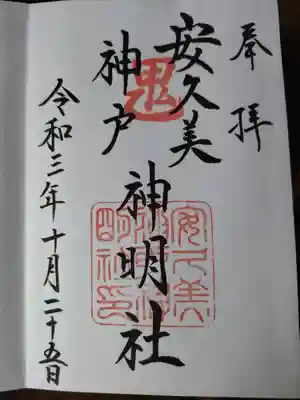 奉拝
安久美
神戸
神明社
令和三年十月二十五日
鬼
安久美神戸神明社印